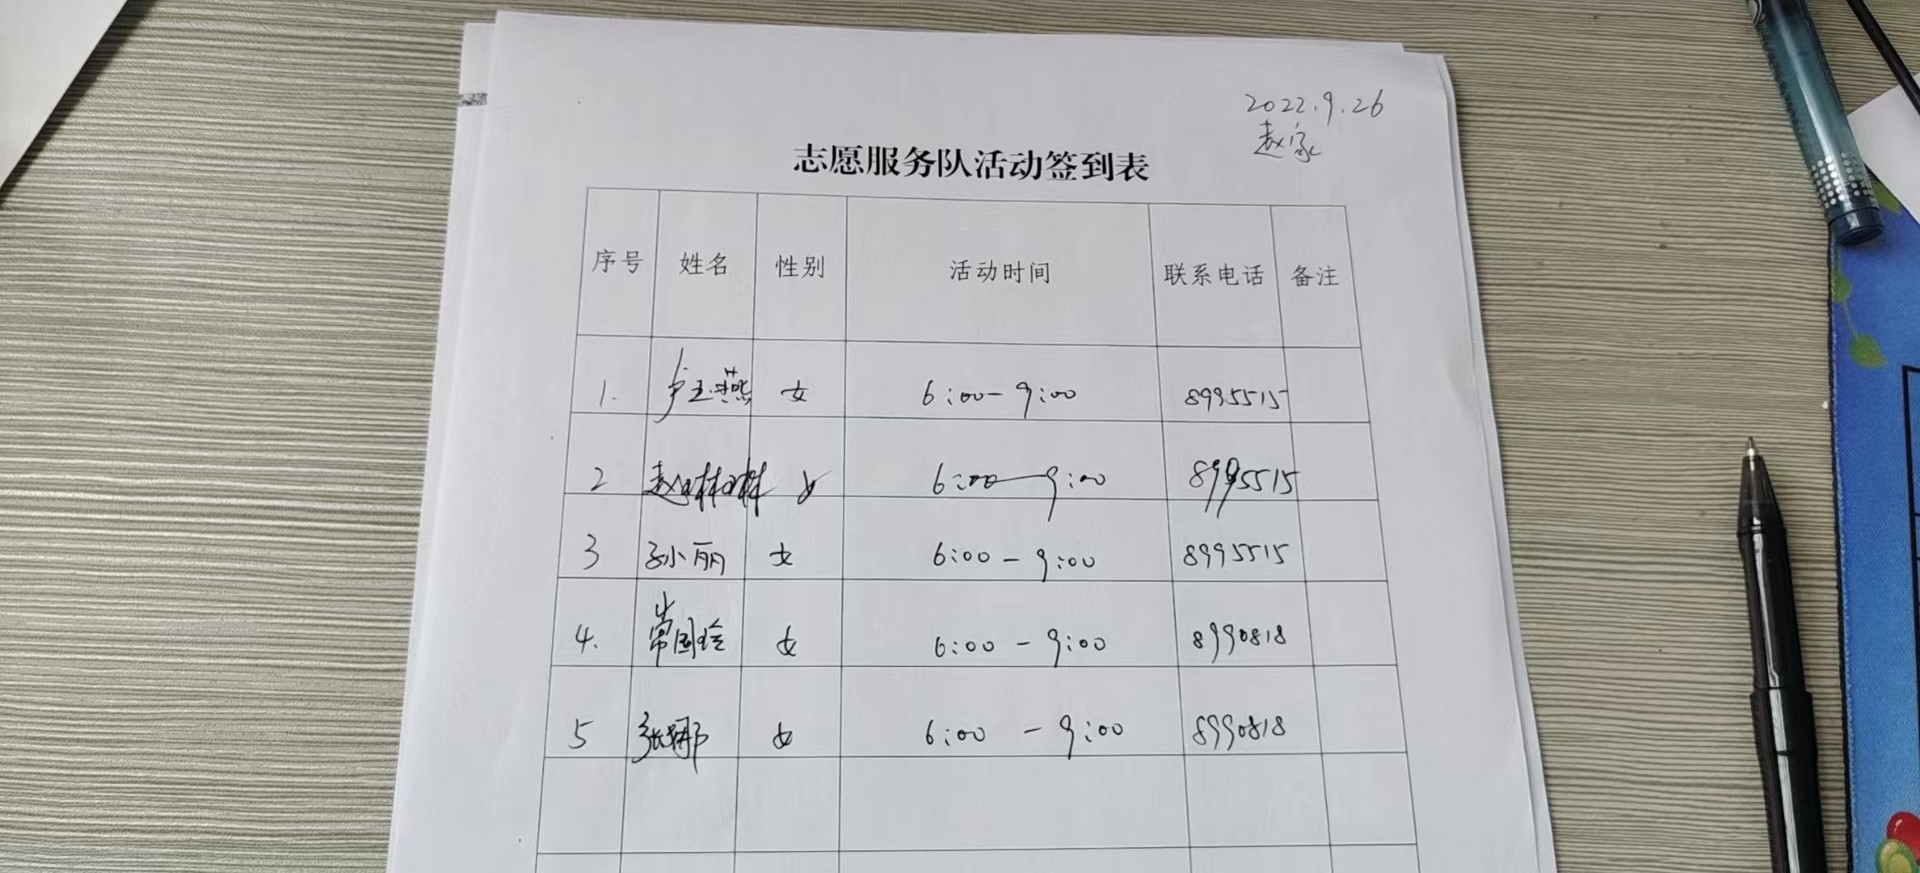 2022.9.26
赵家
志愿服务队活动签到表
序号 姓名 性别 活动时间 联系电话 备注
1. 卢玉燕 女 6:00-9:00 8995515
2 赵琳琳 女 6:00-9:00 8995515
3 孙小丽 女 6:00-9:00 8995515
4. 常国玲 女 6:00-9:00 8990818
5 张娜 女 6:00-9:00 8990818